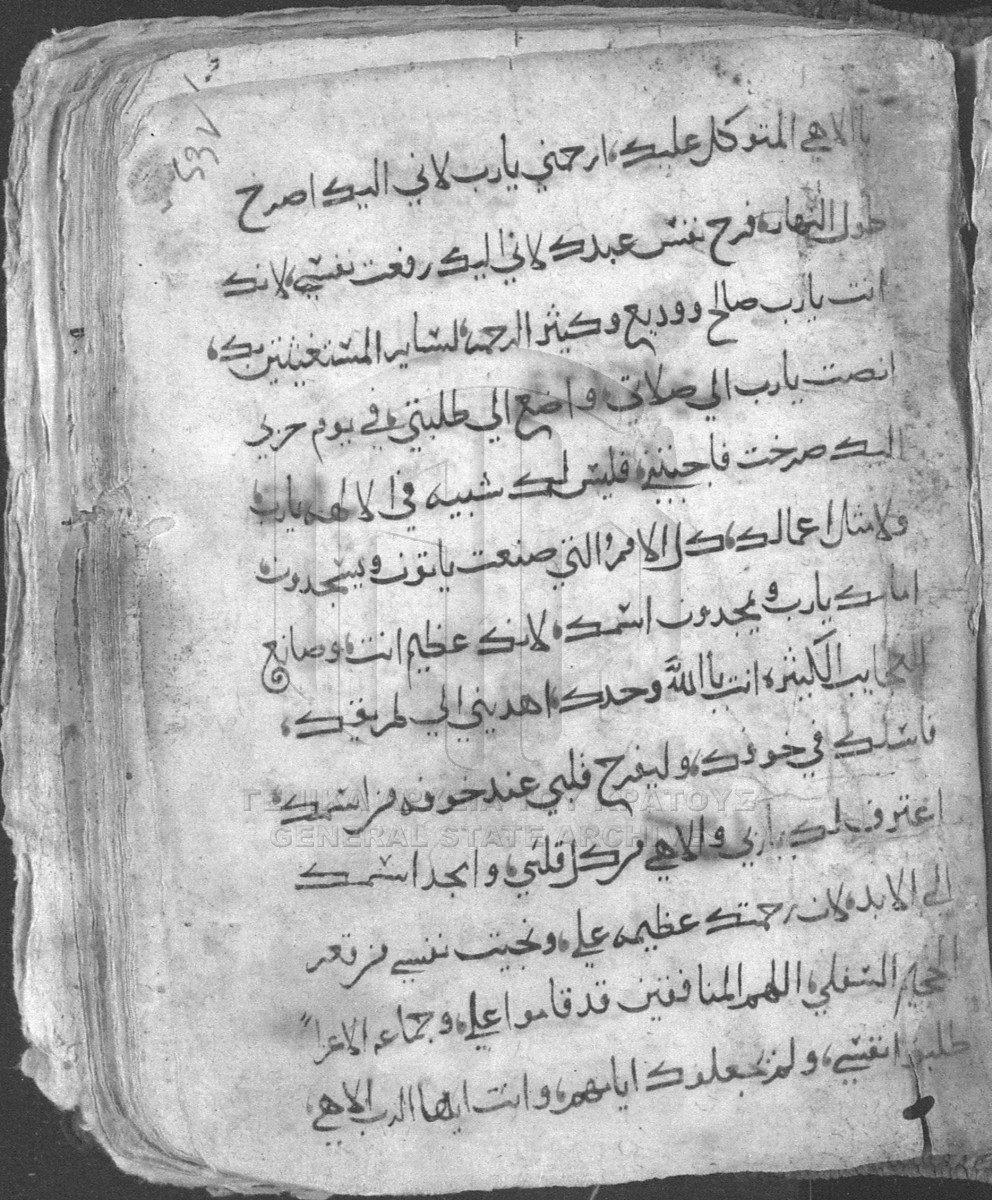 يا الاهي المتوكل عليك، ارحمني يارب لاني اليك اصرخ
طول النهار، فرح نفس عبدك لاني اليك رفعت نفسي، لانك
انت يارب صالح ووديع وكثير الرحمه، لساير المستغيثين بك،
انصت يارب الي صلاتي واضع الي طلبتي، في يوم حزني
اليك صرخت فاجبتني، فليس لك شبيه في الالهه يارب
ولامثل اعمالك، كل الامم التي صنعت ياتون ويسجدون،
امامك يارب ويمجدون اسمك، لانك عظيم انت، وصانع
العجايب الكثيره، انت ياالله وحدك، اهديني الي طريقك،
فاسلك في حقك، وليفرح قلبي عند خوفه من اسمك،
اعترف لك ياربي والاهي من كل قلبي، وامجد اسمك
الي الابد، لان رحمتك عظيمه علي، ونجيت نفسي من قعر
الجحيم السفلي، اللهم المنافقين قد قاموا علي، وجماعه الاعزا
طلبوا نفسي، ولم يجعلوك امامهم، وانت ايها الرب الاهي،
ΓΕΝΙΚΑ ΑΡΧΕΙΑ ΤΟΥ ΚΡΑΤΟΥΣ
GENERAL STATE ARCHIVES